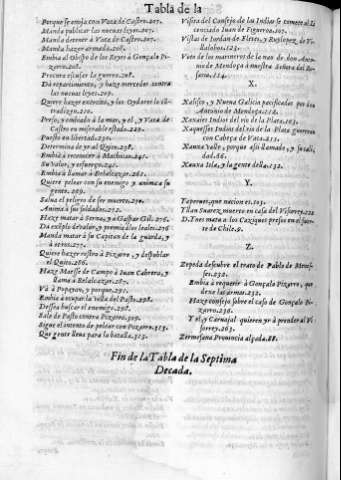 Tabla de la
Porque se enoja con Vaca de Castro.207.
Manda publicar las nueuas leyes.207.
Manda detener à Vaca de Castro.207.
Manda hazer armada.208.
Embia al Obispo de los Reyes à Gonçalo Pi-
zarro.208.
Procura escusar la guerra.208.
Dà repartimiento, y haze mercedes contra
las nueuas leyes.209.
Quiere hazer
Preso, y embiado à la mar, y el, y Vaca de
Castro en miserable estado.
Puesto en libertad.230.
Determina de yr al Quito.238.
Embia à reconocer à Machuca.241.
Su valor, y esfuerço.
Embia à llamar à Belalcazar.
Quiere pelear con su enemigo y anima su
gente.269.
Salua el peligro de ser muerto.
Anima à sus soldados.
Haze matar à Serna, y à Gaspar Gil.276.
Da exẽplo de valor, y premia à los leales.276.
Manda matar à su Capitan de la guarda, y
à otros.277.
Quiere hazer rostro à Pizarro, y despoblar
el Quito.266.
Haze Maesse de Campo à Iuan Cabrera, y
llama à Belalcazar.287.
Và à Popayan, y porque.
Embia à ocupar la villa del Pasto.298.
Dessea buscar el enemigo.298.
Sale de Pasto contra Pizarro.
Sigue el intento de pelear con Pizarro.313.
Que gente lleua para la batalla.313.
Visita del Consejo de las Indias se comete al Li
cenciado Iuan de Figueroa.107.
Vistas de Iordan de Fletes, y Ruylopez de Vi
llalobos.123.
Voto de los marineros de la nao de don Anto-
nio de Mendoça à nuestra Señora del Ro-
sario.114.
X.
Xalisco, y Nueua Galicia pacificadas por don
Antonio de Mendoça.114.
Xanaies Indios del rio de la Plata.163.
Xaquesses Indios del rio de la Plata guerrean
con Cabeça de Vaca.211.
Xauxa Valle, porque assi llamado, y su cali-
dad.66.
Xauxa Isla, y la gente della.132.
Y.
Yaperues, que nacion es.103.
Yllan Suarez muerto en casa del Visorrey.222
D.Yñes mata a los Caziques presos en el fuer-
te de Chile.9.
Z.
Zepeda descubre el trato de Pablo de Mene-
ses.232.
Embia à requerir à Gonçalo Pizarro, que
dexe las armas.232.
Haze consejo sobre el caso de Gonçalo Pi-
zarro.236.
Y el, y Caruajal quieren yr à prender al Vi-
sorrey.263.
Zermesana Prouincia alçada.88.
Fin de la Tabla de la Septima
Decada.